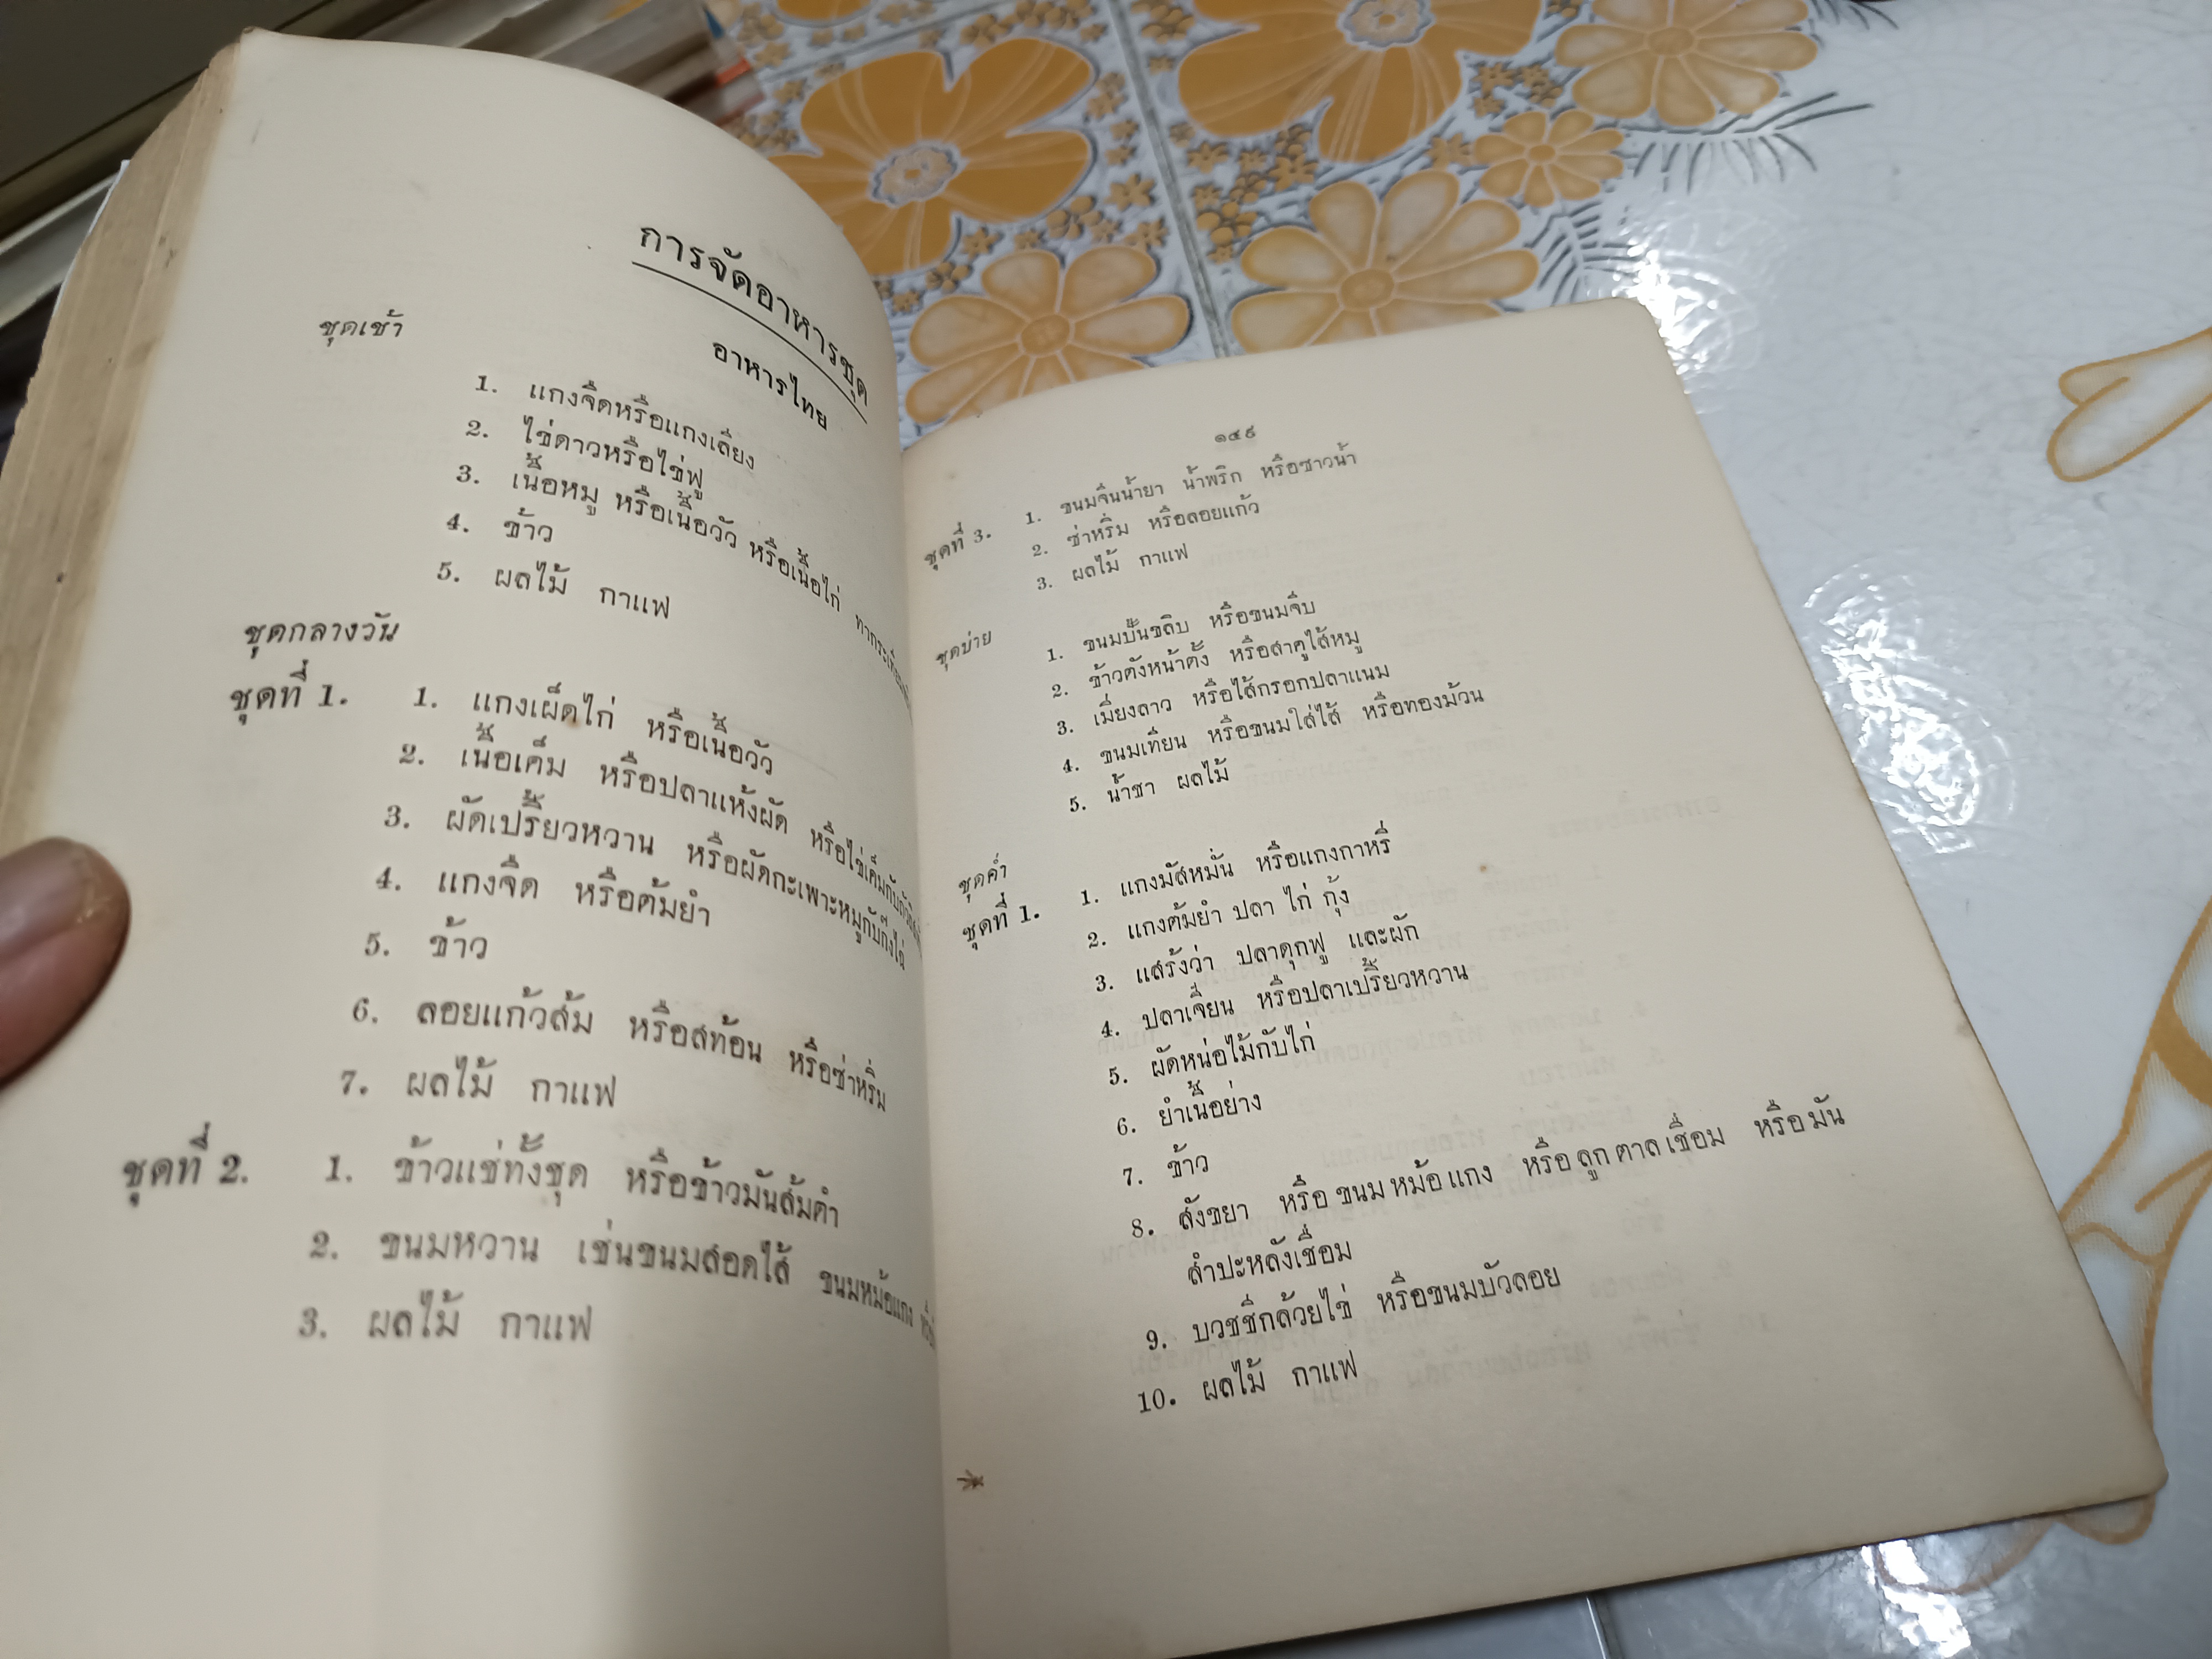 การจัดอาหารชุด
อาหารไทย
ชุดเช้า
1. แกงจืดหรือแกงเลียง
2. ไข่ดาวหรือไข่ฟู
3. เนื้อหมู หรือเนื้อวัว หรือเนื้อไก่
4. ข้าว
5. ผลไม้ กาแฟ
ชุดกลางวัน
ชุดที่ 1. 1. แกงเผ็ดไก่ หรือเนื้อวัว
2. เนื้อเค็ม หรือปลาแห้งผัด หรือไข่เค็มกับ
3. ผัดเปรี้ยวหวาน หรือผัดกะเพาะหมูกับกึ๋นไก่
4. แกงจืด หรือต้มยำ
5. ข้าว
6. ลอยแก้วส้ม หรือสท้อน หรือซ่าหริ่ม
7. ผลไม้ กาแฟ
ชุดที่ 2. 1. ข้าวแช่ทั้งชุด หรือข้าวมันส้มตำ
2. ขนมหวาน เช่นขนมสอดไส้ ขนมหม้อแกง
3. ผลไม้ กาแฟ
๑๔๙
ชุดที่ 3. 1. ขนมจีนน้ำยา น้ำพริก หรือซาวน้ำ
2. ซ่าหริ่ม หรือลอยแก้ว
3. ผลไม้ กาแฟ
ชุดบ่าย 1. ขนมปั้นขลิบ หรือขนมจีบ
2. ข้าวตังหน้าตั้ง หรือสาคูไส้หมู
3. เมี่ยงลาว หรือไส้กรอกปลาแนม
4. ขนมเทียน หรือขนมใส่ไส้ หรือทองม้วน
5. น้ำชา ผลไม้
ชุดค่ำ
ชุดที่ 1. 1. แกงมัสหมั่น หรือแกงกาหรี่
2. แกงต้มยำ ปลา ไก่ กุ้ง
3. แสร้งว่า ปลาดุกฟู และผัก
4. ปลาเจี๋ยน หรือปลาเปรี้ยวหวาน
5. ผัดหน่อไม้กับไก่
6. ยำเนื้อย่าง
7. ข้าว
8. สังขยา หรือ ขนมหม้อแกง หรือ ลูกตาลเชื่อม หรือ มัน
สำปะหลังเชื่อม
9. บวชชีกล้วยไข่ หรือขนมบัวลอย
10. ผลไม้ กาแฟ